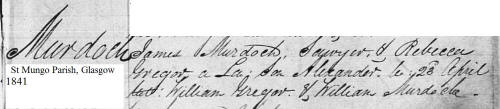 Murdoch
St Mungo Parish, Glasgow
1841
James Murdoch, Sawyer, & Rebecca
Gregor a La: Son Alexander. b. 23d April
Wit: William Gregor & William Murdoch